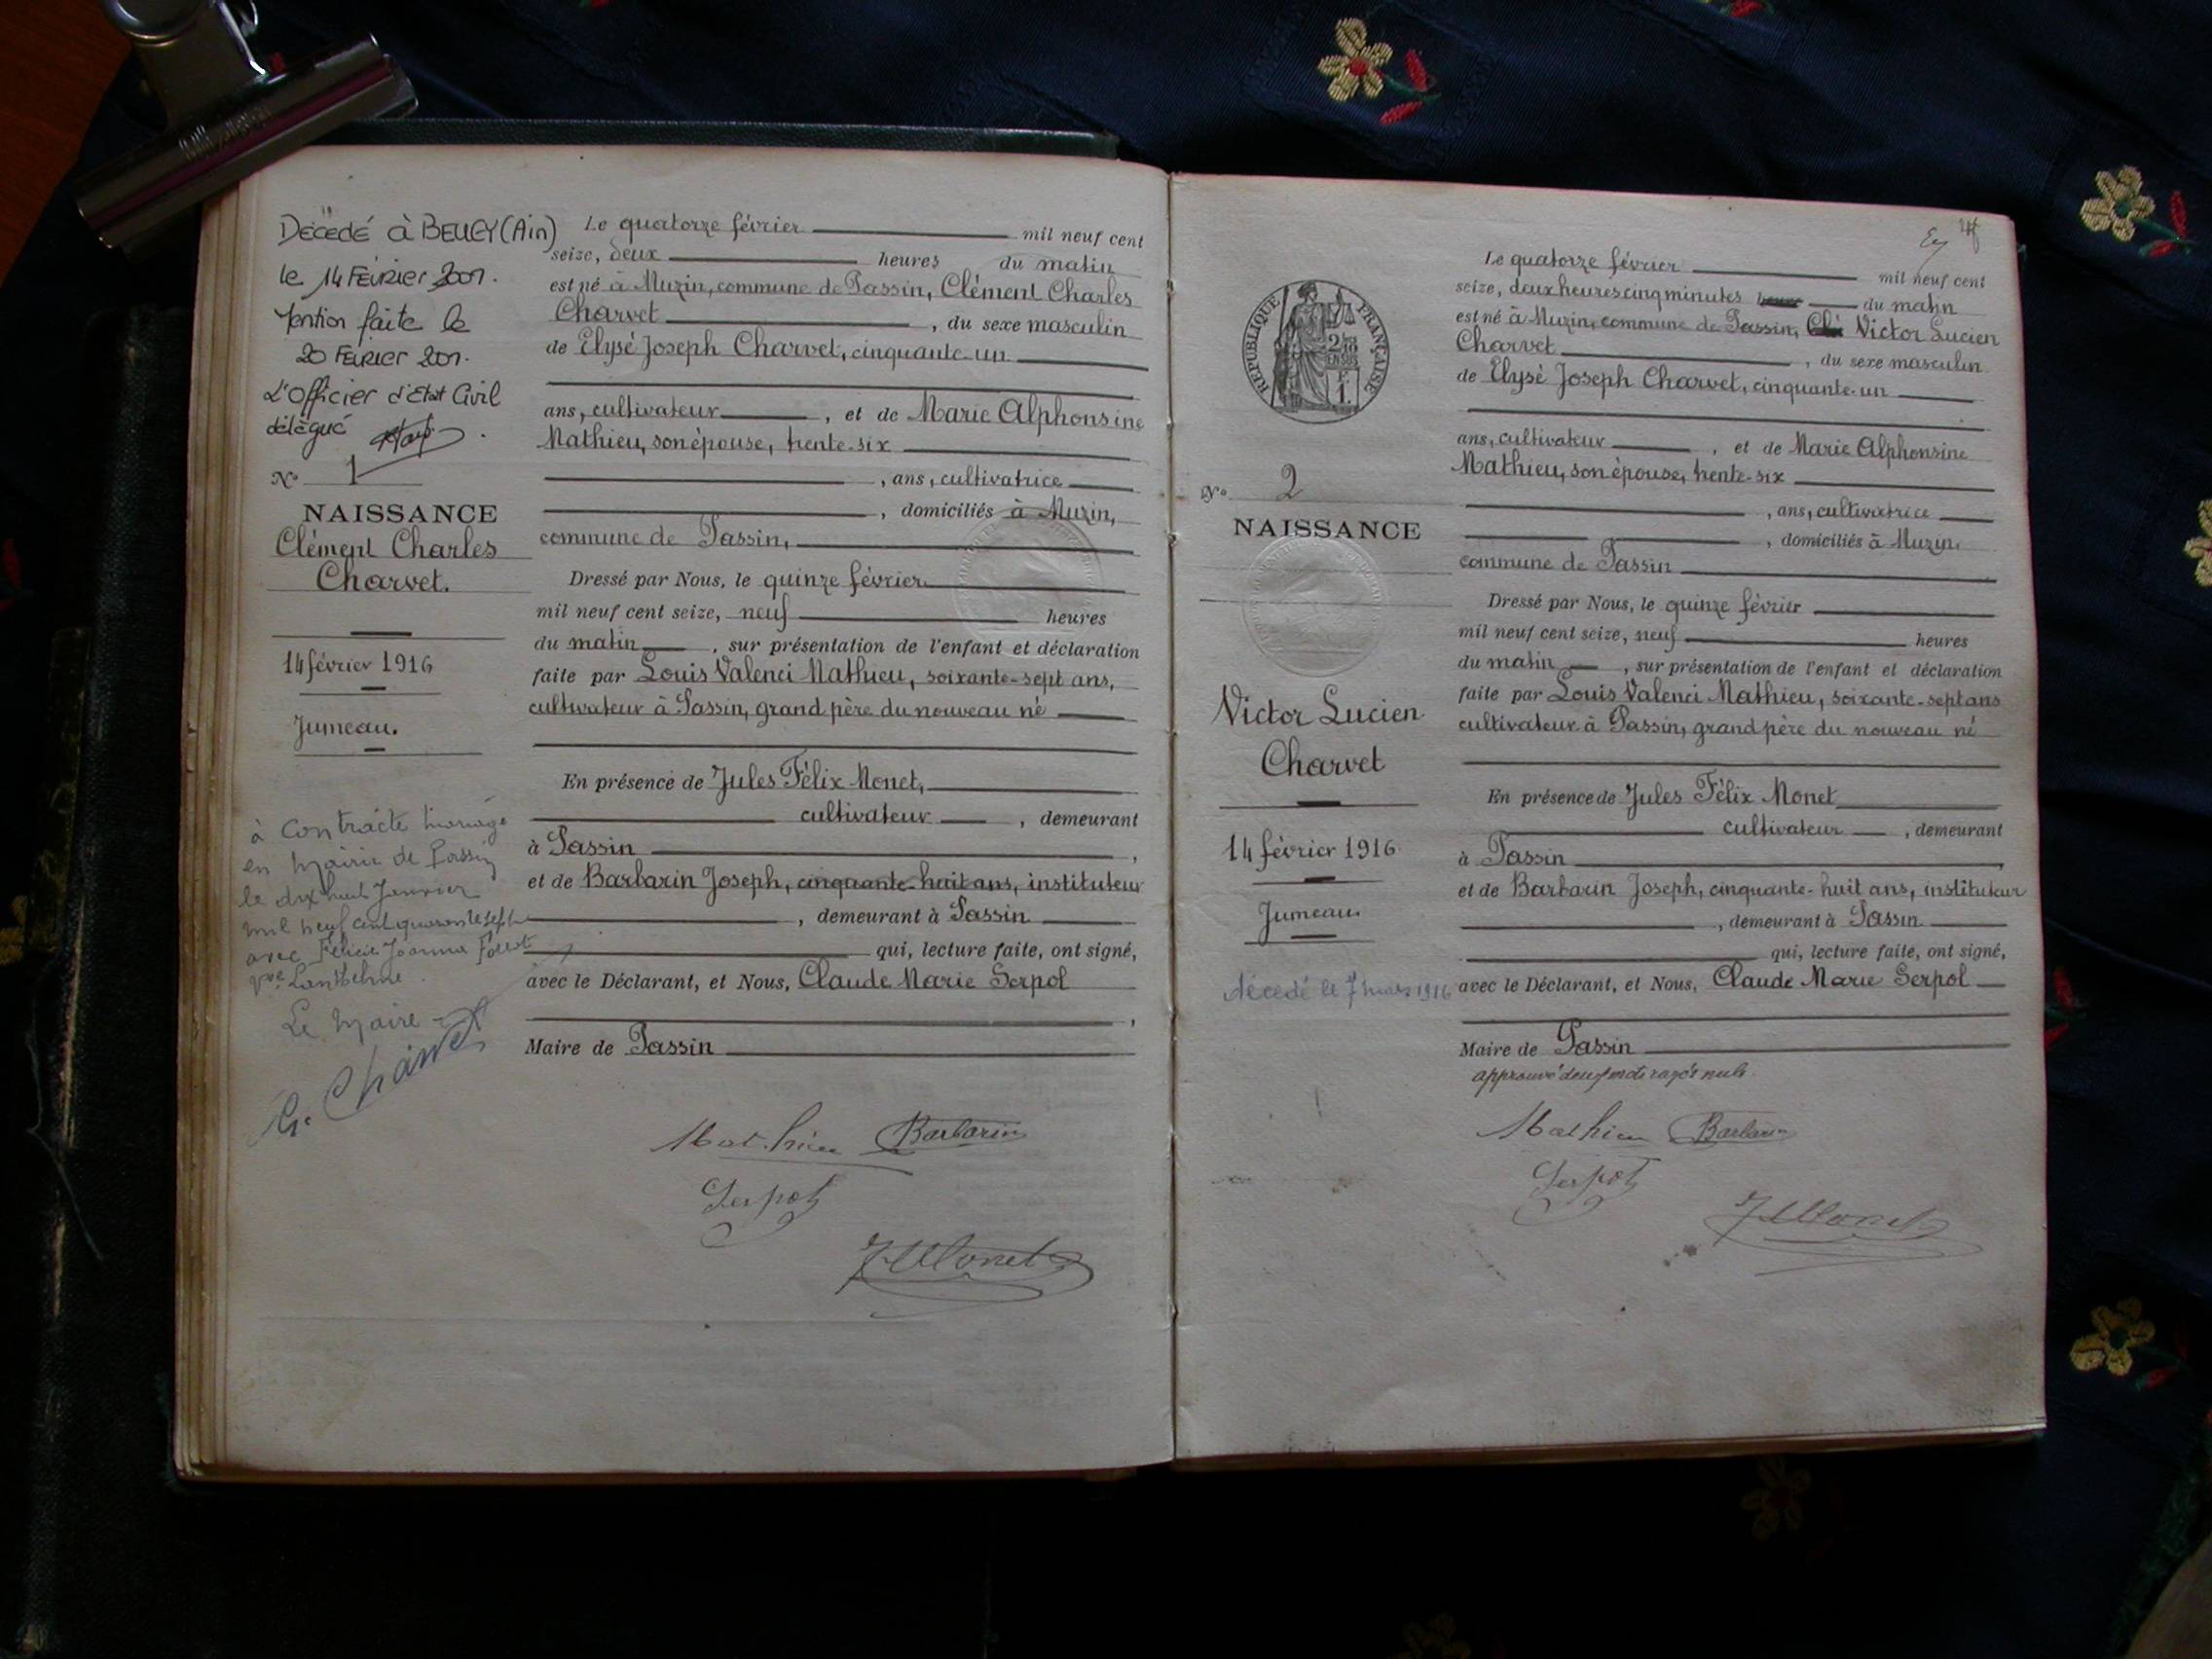 Décédé à BELLEY (Ain)
le 14 FÉVRIER 2001.
Mention faite le
20 FÉVRIER 2001.
L'Officier d'Etat Civil
délégué
N° 1
NAISSANCE
Clément Charles
Charvet.
14 février 1916
Jumeau.
à contracté mariage
en Mairie de Passin
le dix huit Janvier
mil neuf cent quarante sept
avec Félicie Joanna
Le Maire
Charvet
Le quatorze février mil neuf cent
seize, deux heures du matin
est né à Muzin, commune de Passin, Clément Charles
Charvet, du sexe masculin
de Elysé Joseph Charvet, cinquante-un
ans, cultivateur, et de Marie Alphonsine
Mathieu, son épouse, trente-six
, ans, cultivatrice
, domiciliés à Muzin,
commune de Passin,
Dressé par Nous, le quinze février
mil neuf cent seize, neuf heures
du matin, sur présentation de l'enfant et déclaration
faite par Louis Valenci Mathieu, soixante-sept ans,
cultivateur à Passin, grand père du nouveau né
En présence de Jules Félix Monet,
cultivateur, demeurant
à Passin,
et de Barbarin Joseph, cinquante-huit ans, instituteur
, demeurant à Passin
qui, lecture faite, ont signé,
avec le Déclarant, et Nous, Claude Marie Serpol
,
Maire de Passin
Mathieu Barbarin
Serpol
J Monet
RÉPUBLIQUE FRANÇAISE
2/10
EN SUS
1.
N° 2
NAISSANCE
Victor Lucien
Charvet
14 février 1916
Jumeau.
décédé le 7 mars 1916
Le quatorze février mil neuf cent
seize, deux heures cinq minutes du matin
est né à Muzin, commune de Passin, Clé Victor Lucien
Charvet, du sexe masculin
de Elysé Joseph Charvet, cinquante-un
ans, cultivateur, et de Marie Alphonsine
Mathieu, son épouse, trente-six
, ans, cultivatrice
, domiciliés à Muzin.
commune de Passin
Dressé par Nous, le quinze février
mil neuf cent seize, neuf heures
du matin, sur présentation de l'enfant et déclaration
faite par Louis Valenci Mathieu, soixante-sept ans
cultivateur à Passin, grand père du nouveau né
En présence de Jules Félix Monet
cultivateur, demeurant
à Passin,
et de Barbarin Joseph, cinquante-huit ans, instituteur
, demeurant à Passin
qui, lecture faite, ont signé,
avec le Déclarant, et Nous, Claude Marie Serpol
Maire de Passin
approuvé deux mots rayés nuls.
Mathieu Barbarin
Serpol
J Monet